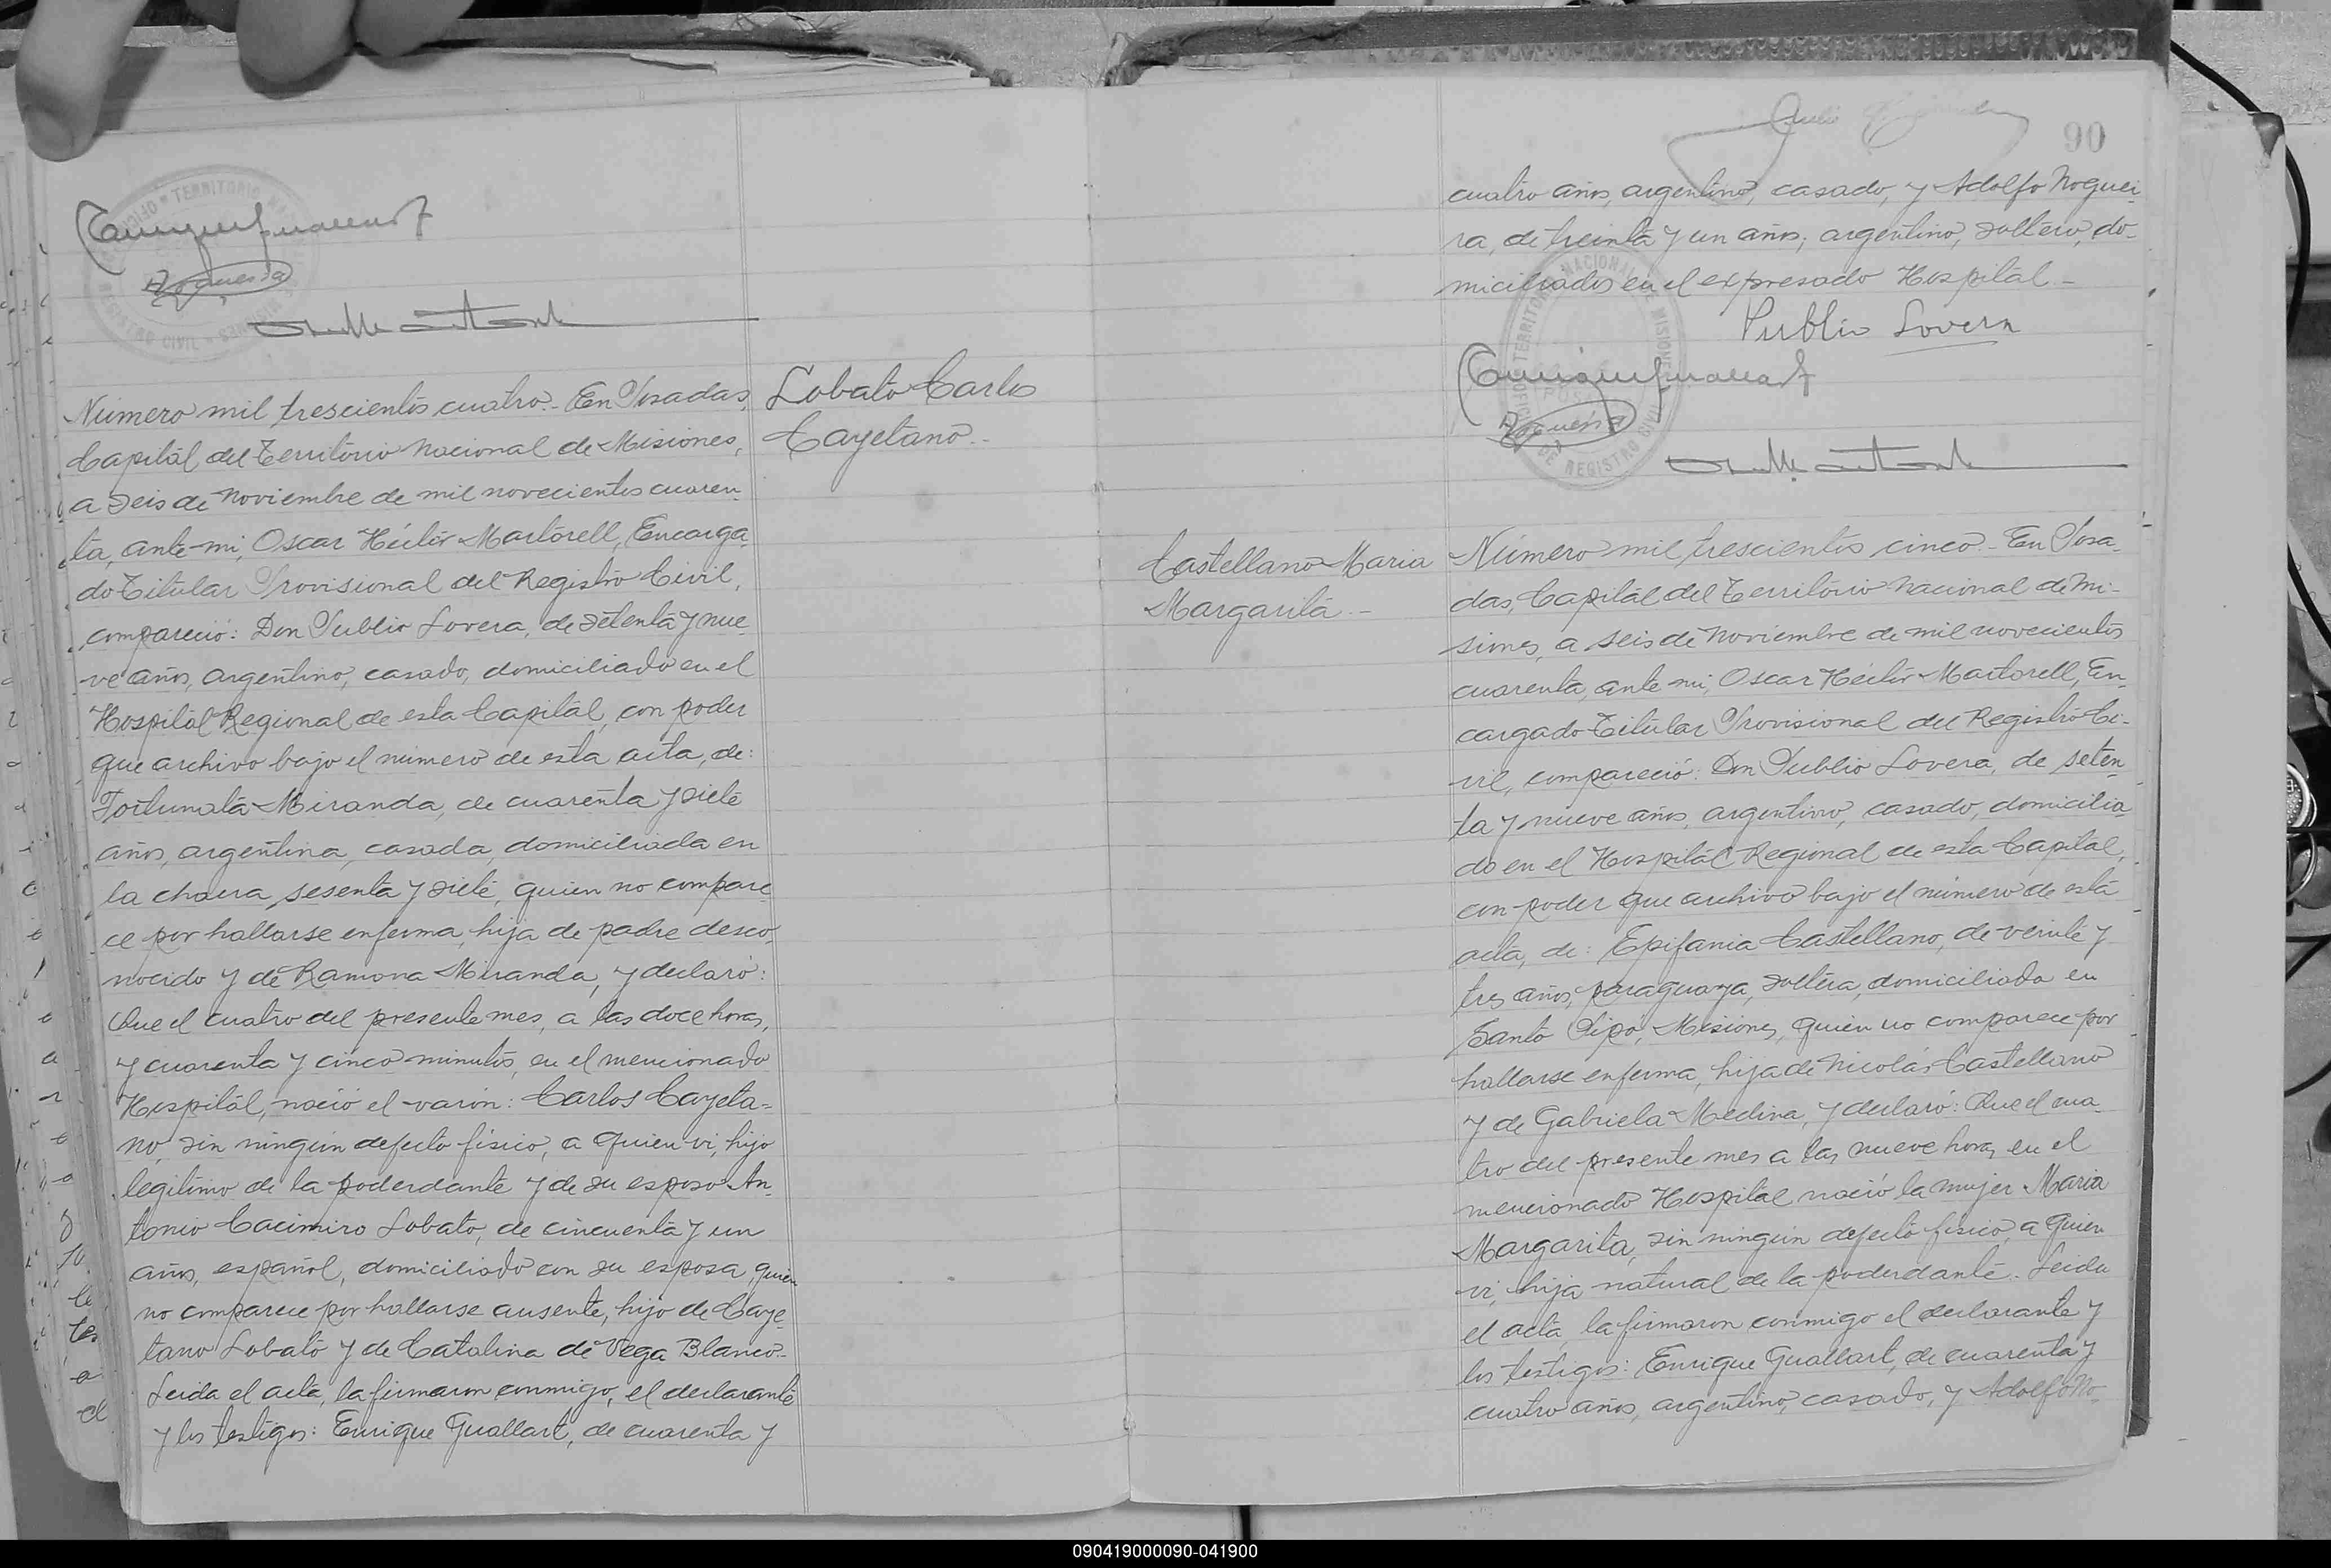 Número mil trescientos cuatro.- En Posadas,
Capital del Territorio Nacional de Misiones,
a seis de Noviembre de mil novecientos cuaren
ta, ante mi, Oscar Héctor Martorell, Encarga
do Titular Provisional del Registro Civil,
compareció: Don Publio Lovera, de setenta y nue
ve años, argentino, casado, domiciliado en el
Hospital Regional de esta Capital, con poder
que archivo bajo el número de esta acta, de:
Fortunata Miranda, de cuarenta y siete
años, argentina, casada, domiciliada en
la chacra sesenta y siete, quien no compare
ce por hallarse enferma, hija de padre desco
nocido y de Ramona Miranda, y declaró:
Que el cuatro del presente mes, a las doce horas,
y cuarenta y cinco minutos, en el mencionado
Hospital, nació el varón: Carlos Cayeta=
no, sin ningún defecto físico, a quien vi, hijo
legítimo de la poderdante y de su esposo An
tonio Cacimiro Lobato, de cincuenta y un
años, español, domiciliado con su esposa, quien
no comparece por hallarse ausente, hijo de Caye
tano Lobato y de Catalina de Vega Blanco.-
Leida el acta, la firmaron conmigo, el declarante
y los testigos: Enrique Guallart, de cuarenta y
Lobato Carlos
Cayetano.-
90
cuatro años, argentino, casado, y Adolfo Noguei
ra, de treinta y un años, argentino, soltero, do-
miciliados en el expresado Hospital.-
Publio Lovera
Castellano Maria
Margarita.-
Número mil trescientos cinco.- En Posa
das, Capital del Territorio Nacional de Mi-
siones, a seis de Noviembre de mil novecientos
cuarenta, ante mi, Oscar Héctor Martorell, En
cargado Titular Provisional del Registro Ci-
vil, compareció: Don Publio Lovera, de seten
ta y nueve años, argentino, casado, domicilia
do en el Hospital Regional de esta Capital,
con poder que archivo bajo el número de esta
acta, de: Epifania Castellano, de veinte y
tres años, paraguaya, soltera, domiciliada en
Santo Pipó, Misiones, quien no comparece por
hallarse enferma, hija de Nicolás Castellano
y de Gabriela Medina, y declaró: Que el cua
tro del presente mes a las nueve horas, en el
mencionado Hospital nació la mujer Maria
Margarita, sin ningún defecto físico, a quien
vi, hija natural de la poderdante.- Leida
el acta, la firmaron conmigo el declarante y
los testigos: Enrique Guallart, de cuarenta y
cuatro años, argentino, casado, y Adolfo No
090419000090-041900